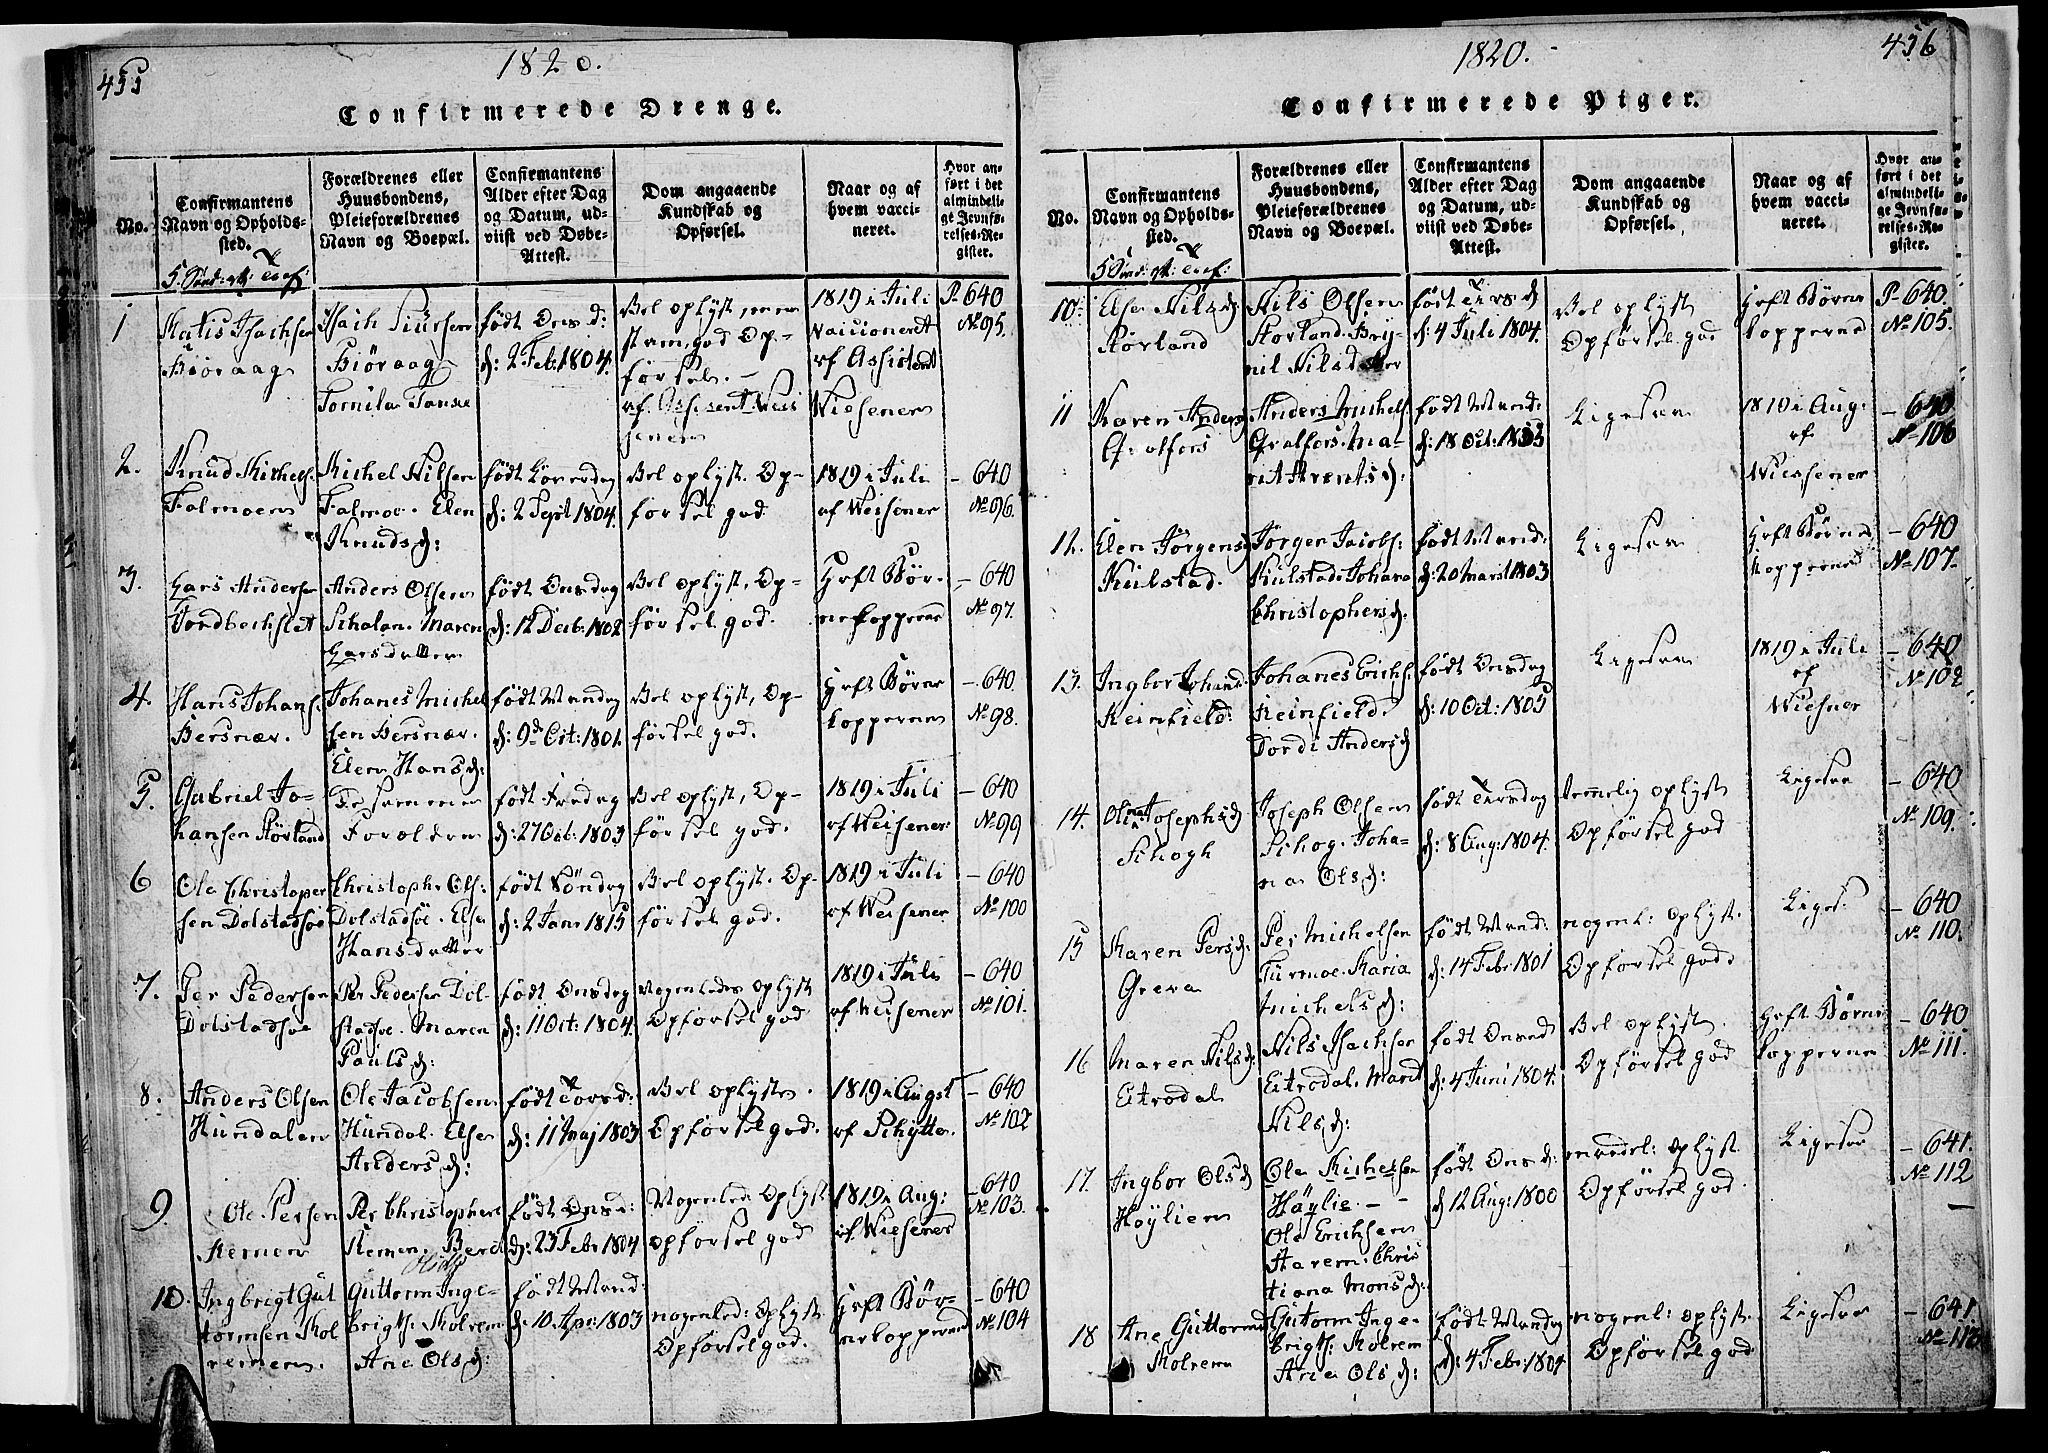 455
1820.
Confirmerede Drenge.
No.
Confirmantens Navn og Opholdssted.
Forældrenes eller Huusbondens, Pleieforældrenes Navn og Boepæl.
Confirmantens Alder efter Dag og Datum, udviist ved Døbe-Attest.
Dom angaaende Kundskab og Opførsel.
Naar og af hvem vaccineret.
Hvor anført i det almindelige Jevnførelses-Register.
1
Isachsen
Biøraag
Isach Siursen
Biøraag
født Onsd:
d: 2 Feb: 1804.
Vel oplyst
god Op-
førsel.
1819 i Juli
af Assistent
Wiesener
P- 640
No 95.
2.
Knud Michels.
Falmoen
Michel Nilsen
Falmoe. Elen
Knudsd:
født Løverdag
d: 2 Sept 1804.
Vel oplyst. Op-
førsel god
1819 i Juli
af Weisener
- 640
No 96.
3.
Lars Andersen
Anders Olsen
Maren
Larsdatter
født Onsdag
d: 12 Decb. 1802
Vel oplyst, Op-
førsel god.
Haft Bør-
nekopperne
- 640
No 97.
4.
Hans Johans.
Bersnær.
Johanes Michel
sen Bersnær.
Elen Hansd:
født Mandag
d: 9d Oct: 1801.
Vel oplyst, Op-
førsel god.
Haft Børne
kopperne
- 640.
No 98.
5.
Gabriel Jo-
hansen Størland
De samme
Forældre
født Fredag
d: 27 Oct: 1803
Vel oplyst, Op-
førsel god.
1819 i Juli
af Weisener
- 640
No 99
6
Ole Christoper
sen Dolstadsøe
Christoph. Ols:
Dolstadsøe. Else
Hansdatter
født Søndag
d: 2 Janr 1815
Vel oplyst. Op-
førsel god.
1819 i Juli
af Weisener
- 640
No 100
7.
Per Pedersen
Dolstadsøe
Per Pedersen Dol-
stadsøe. Maren
Paulsd:
født Onsdag
d: 11 Oct: 1804.
Nogenledes oplyst
Opførsel god
1819 i Juli
af Weisener
- 640
No 101.
8.
Anders Olsen
Hundalen
Ole Jacobsen
Hundal. Else
Andersd:
født Torsd:
d: 11 Maj 1803
Vel oplyst.
Opførsel god.
1819 i Augst
af Schytte.
- 640
No 102
9
Ole Persen
Remen
Per Christophers
Remen.
Olsd:
født Onsd:
d: 23 Febr 1804
Nogenled. Oplyst
opførsel god
1819 i Aug:
af Wiesener
- 640
No 103.
10.
Ingbrigt Gut
tormsen Mol
remen.
Guttorm Inge-
brigts: Molrem
Ane Olsd:
født Mand:
d: 10 Apr: 1803
nogenled: Oplyst
Opførsel god.
Haft Bør-
nekopperne
- 640
No 104
456
1820.
Confirmerede Piger.
No.
Confirmantens Navn og Opholdssted.
Forældrenes eller Huusbondens, Pleieforældrenes Navn og Boepæl.
Confirmantens Alder efter Dag og Datum, udviist ved Døbe-Attest.
Dom angaaende Kundskab og Opførsel.
Naar og af hvem vaccineret.
Hvor anført i det almindelige Jevnførelses-Register.
10.
Else Nilsd
Størland
Nils Olsen
Størland. Bry-
nil Nilsdatter
født Tirsd
d: 4 Juli 1804.
Vel oplyst
Opførsel god
Haft Børne
kopperne
P- 640.
No 105.
11
Karen Anders
Anders Michels.
Ma-
rit Arentsd:
født Mand:
d: 18 Oct: 1805
Ligesaa
1810 i Aug:
af
Wiesener
- 640
No 106
12.
Elen Jørgensd
Kulstad.
Jørgen Jacobs:
Kulstad. Johana
Christophersd:
født Mand:
d: 20 Marst 1803
Ligesaa
Haft Børne
kopperne
- 640
No 107.
13.
Ingbor Johand.
Reinfield:
Johanes Erichs.
Reinfield.
Dordi Andersd
født Onsdag
d: 10 Oct: 1805
Ligesaa
1819 i Juli
af
Wiesner
- 640
No 108
14.
Josephsd
Joseph Olsen
Joha-
na Olsd:
født Tirsdag
d: 8 Aug: 1804.
temmelig oplyst
Opførsel god
Ligesaa
- 640
No 109.
15
Karen Persd:
Greva
Per Michelsen
Turmoe. Maria
Michelsd:
født Mand:
d: 14 Febr 1801
nogenl: Oplyst.
Opførsel god.
Liges:
- 640
No 110.
16
Maren Nilsd:
Eitrodal
Nils Isachsen
Eitrodal. Marit
Nilsd:
født Onsd
d: 4 Juni 1804.
Vel oplyst.
Opførsel god
Haft Børne
kopperne
- 640
No 111.
17.
Ingbor Olsd
Høylien
Ole Michelsen
Høylie. - -
Ole Erichsen
Chris
tiana Monsd:
født Onsd:
d 12 Aug: 1800
oplyst
Opførsel god
Ligesaa
- 641.
No 112
18
Ane Guttormd
Molrem
Gutorm Inge-
brigts: Molrem
Ane Olsd:
født Mandag
d: 4 Febr: 1804
nogenl: oplyst.
Opførsel god
Ligesaa
- 641.